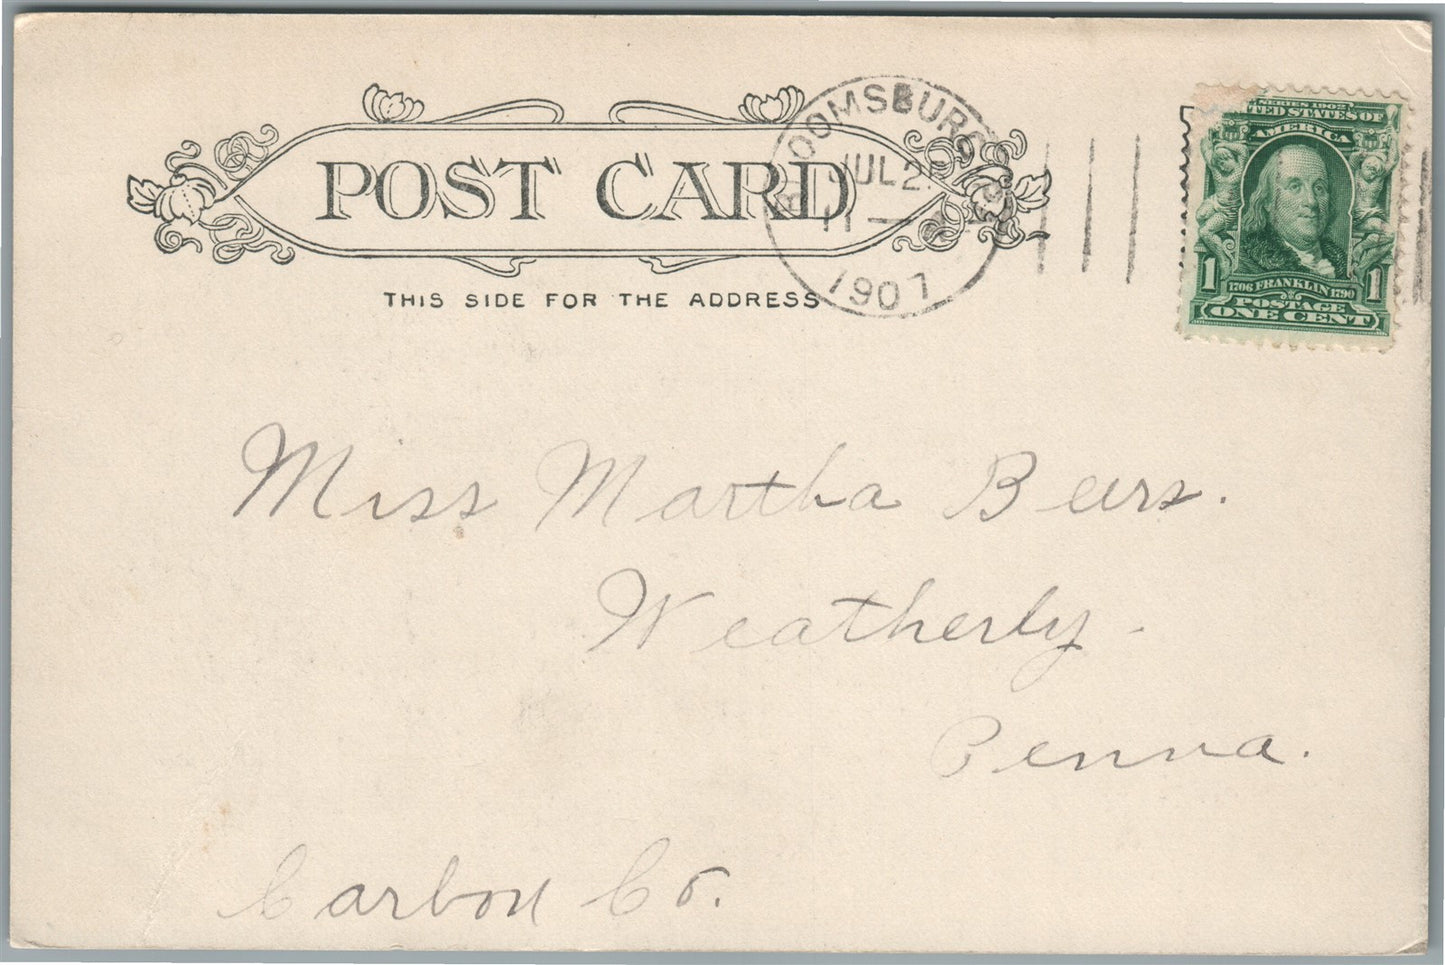 POST CARD
THIS SIDE FOR THE ADDRESS
BLOOMSBURG
JUL 2
11 —
1907
SERIES 1902
UNITED STATES OF
AMERICA
1 1
1706 FRANKLIN 1790
POSTAGE
ONE CENT
Miss Martha Beers.
Weatherly -
Penna.
Carbon Co.